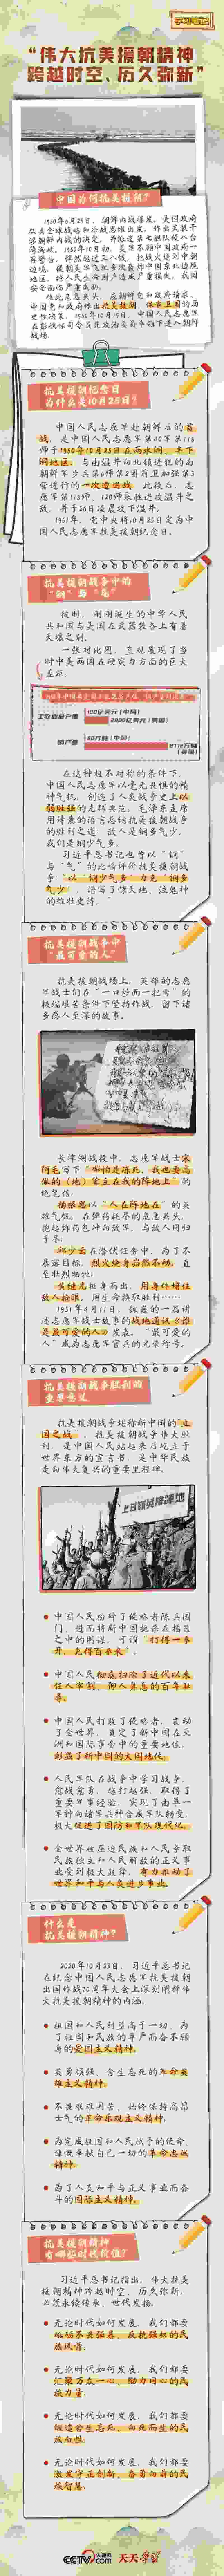 学习笔记
“伟大抗美援朝精神
跨越时空、历久弥新”
中国为何抗美援朝?
1950年6月25日,朝鲜内战爆发。美国政府
再警告,悍然越过三八线,把战火烧到中朝
边境。
抗美援朝 保家卫国的历
抗美援朝纪念日
为什么是10月25日?
中国人民志愿军赴朝鲜后的首
战,是中国人民志愿军第40军第118
师于1950年10月25日在两水洞、丰下
洞地区,与由温井向北镇进犯的南
朝鲜军步兵第6师第2团前卫加强第3
营进行的一次遭遇战。此役后,志
愿军第118师、120师乘胜进攻温井之
敌,并于26日凌晨攻下温井。
1951年,党中央将10月25日定为中
国人民志愿军抗美援朝纪念日。
抗美援朝战争中的
“钢”与“气”
彼时,刚刚诞生的中华人民
共和国与美国在武器装备上有着
天壤之别。
一张对比图,直观展现了当
时中美两国在硬实力方面的巨大
差距。
工农业总产值
100亿美元(中国)
2800亿美元(美国)
钢产量
60万吨(中国)
8772万吨
(美国)
在这种极不对称的条件下,
中国人民志愿军以毫无畏惧的精
神气概,创造了人类战争史上以
弱胜强的光辉典范。毛泽东主席
用诗意的语言总结抗美援朝战争
的胜利之道:敌人是钢多气少,
我们是钢少气多。
习近平总书记也曾以“钢”
与“气”的比喻评价抗美援朝战
争:以“钢少气多”力克“钢多
气少”,谱写了惊天地、泣鬼神
的雄壮史诗。
抗美援朝战争中
“最可爱的人”
抗美援朝战场上,英雄的志愿
军战士们在“一口炒面一把雪”的
极端艰苦条件下坚持作战,留下诸
多感人至深的故事。
长津湖战役中,志愿军战士宋
阿毛写下“哪怕是冻死,我也要高
傲的(地)耸立在我的阵地上”的
绝笔信;
杨根思以“人在阵地在”的英
雄气概,在弹药耗尽的危急关头,
抱起炸药包冲向敌军,与敌人同归
于尽;
邱少云在潜伏任务中,为了不
暴露目标,烈火烧身岿然不动,直
至壮烈牺牲;
黄继光挺身而出,用身体堵住
敌人枪眼,用生命换取胜利……
1951年4月11日,魏巍的一篇讲
述志愿军战士故事的战地通讯《谁
是最可爱的人》发表,“最可爱的
人”成为志愿军官兵的光荣称号。
抗美援朝战争胜利的
重要意义
抗美援朝战争堪称新中国的“立
国之战”。抗美援朝战争伟大胜
利,是中国人民站起来后屹立于
世界东方的宣言书,是中华民族
走向伟大复兴的重要里程碑。
中国人民粉碎了侵略者陈兵国
门、进而将新中国扼杀在摇篮
之中的图谋,可谓“打得一拳
开,免得百拳来”。
中国人民彻底扫除了近代以来
任人宰割、仰人鼻息的百年耻
辱。
中国人民打败了侵略者,震动
了全世界,奠定了新中国在亚
洲和国际事务中的重要地位,
彰显了新中国的大国地位。
人民军队在战争中学习战争,
愈战愈勇,越打越强,取得了
重要军事经验,实现了由单一
军种向诸军兵种合成军队转变,
极大促进了国防和军队现代化。
全世界被压迫民族和人民争取
民族独立和人民解放的正义事
业受到极大鼓舞,有力推动了
世界和平与人类进步事业。
什么是
抗美援朝精神?
2020年10月23日,习近平总书记
在纪念中国人民志愿军抗美援朝
出国作战70周年大会上深刻阐释伟
大抗美援朝精神的内涵:
祖国和人民利益高于一切、为
了祖国和民族的尊严而奋不顾
身的爱国主义精神。
英勇顽强、舍生忘死的革命英
雄主义精神。
不畏艰难困苦、始终保持高昂
士气的革命乐观主义精神。
为完成祖国和人民赋予的使命、
慷慨奉献自己一切的革命忠诚
精神。
为了人类和平与正义事业而奋
斗的国际主义精神。
抗美援朝精神
有哪些时代价值?
习近平总书记指出,伟大抗美
援朝精神跨越时空、历久弥新,
必须永续传承、世代发扬。
无论时代如何发展,我们都要
砥砺不畏强暴、反抗强权的民
族风骨。
无论时代如何发展,我们都要
汇聚万众一心、勠力同心的民
族力量。
无论时代如何发展,我们都要
锻造舍生忘死、向死而生的民
族血性。
无论时代如何发展,我们都要
激发守正创新、奋勇向前的民
族智慧。
CCTV.com 央视网 天天学习